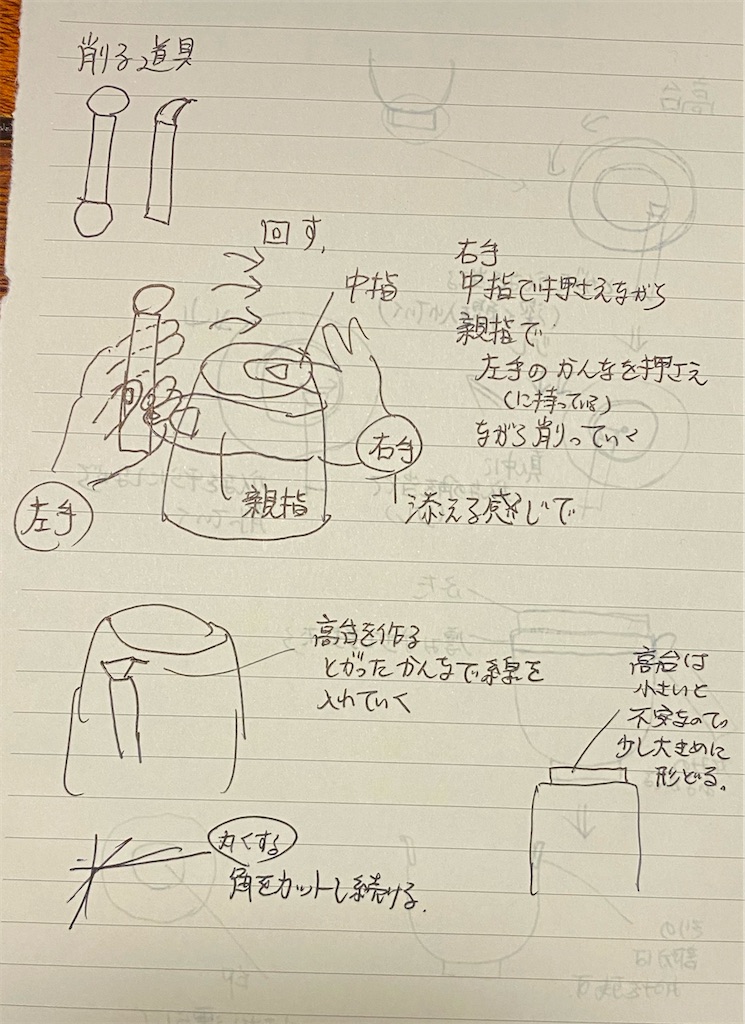 削る道具
回す,
中指
右手
中指で押さえながら
親指で
左手のかんなを押さえ
(に持っている)
ながら削っていく
右手
左手
親指
添える感じで
高台を作る
とがったかんなで線を
入れていく
高台は
小さいと
不安なので
少し大きめに
形どる。
丸くする
角をカットし続ける.
高台
ふた
部分は